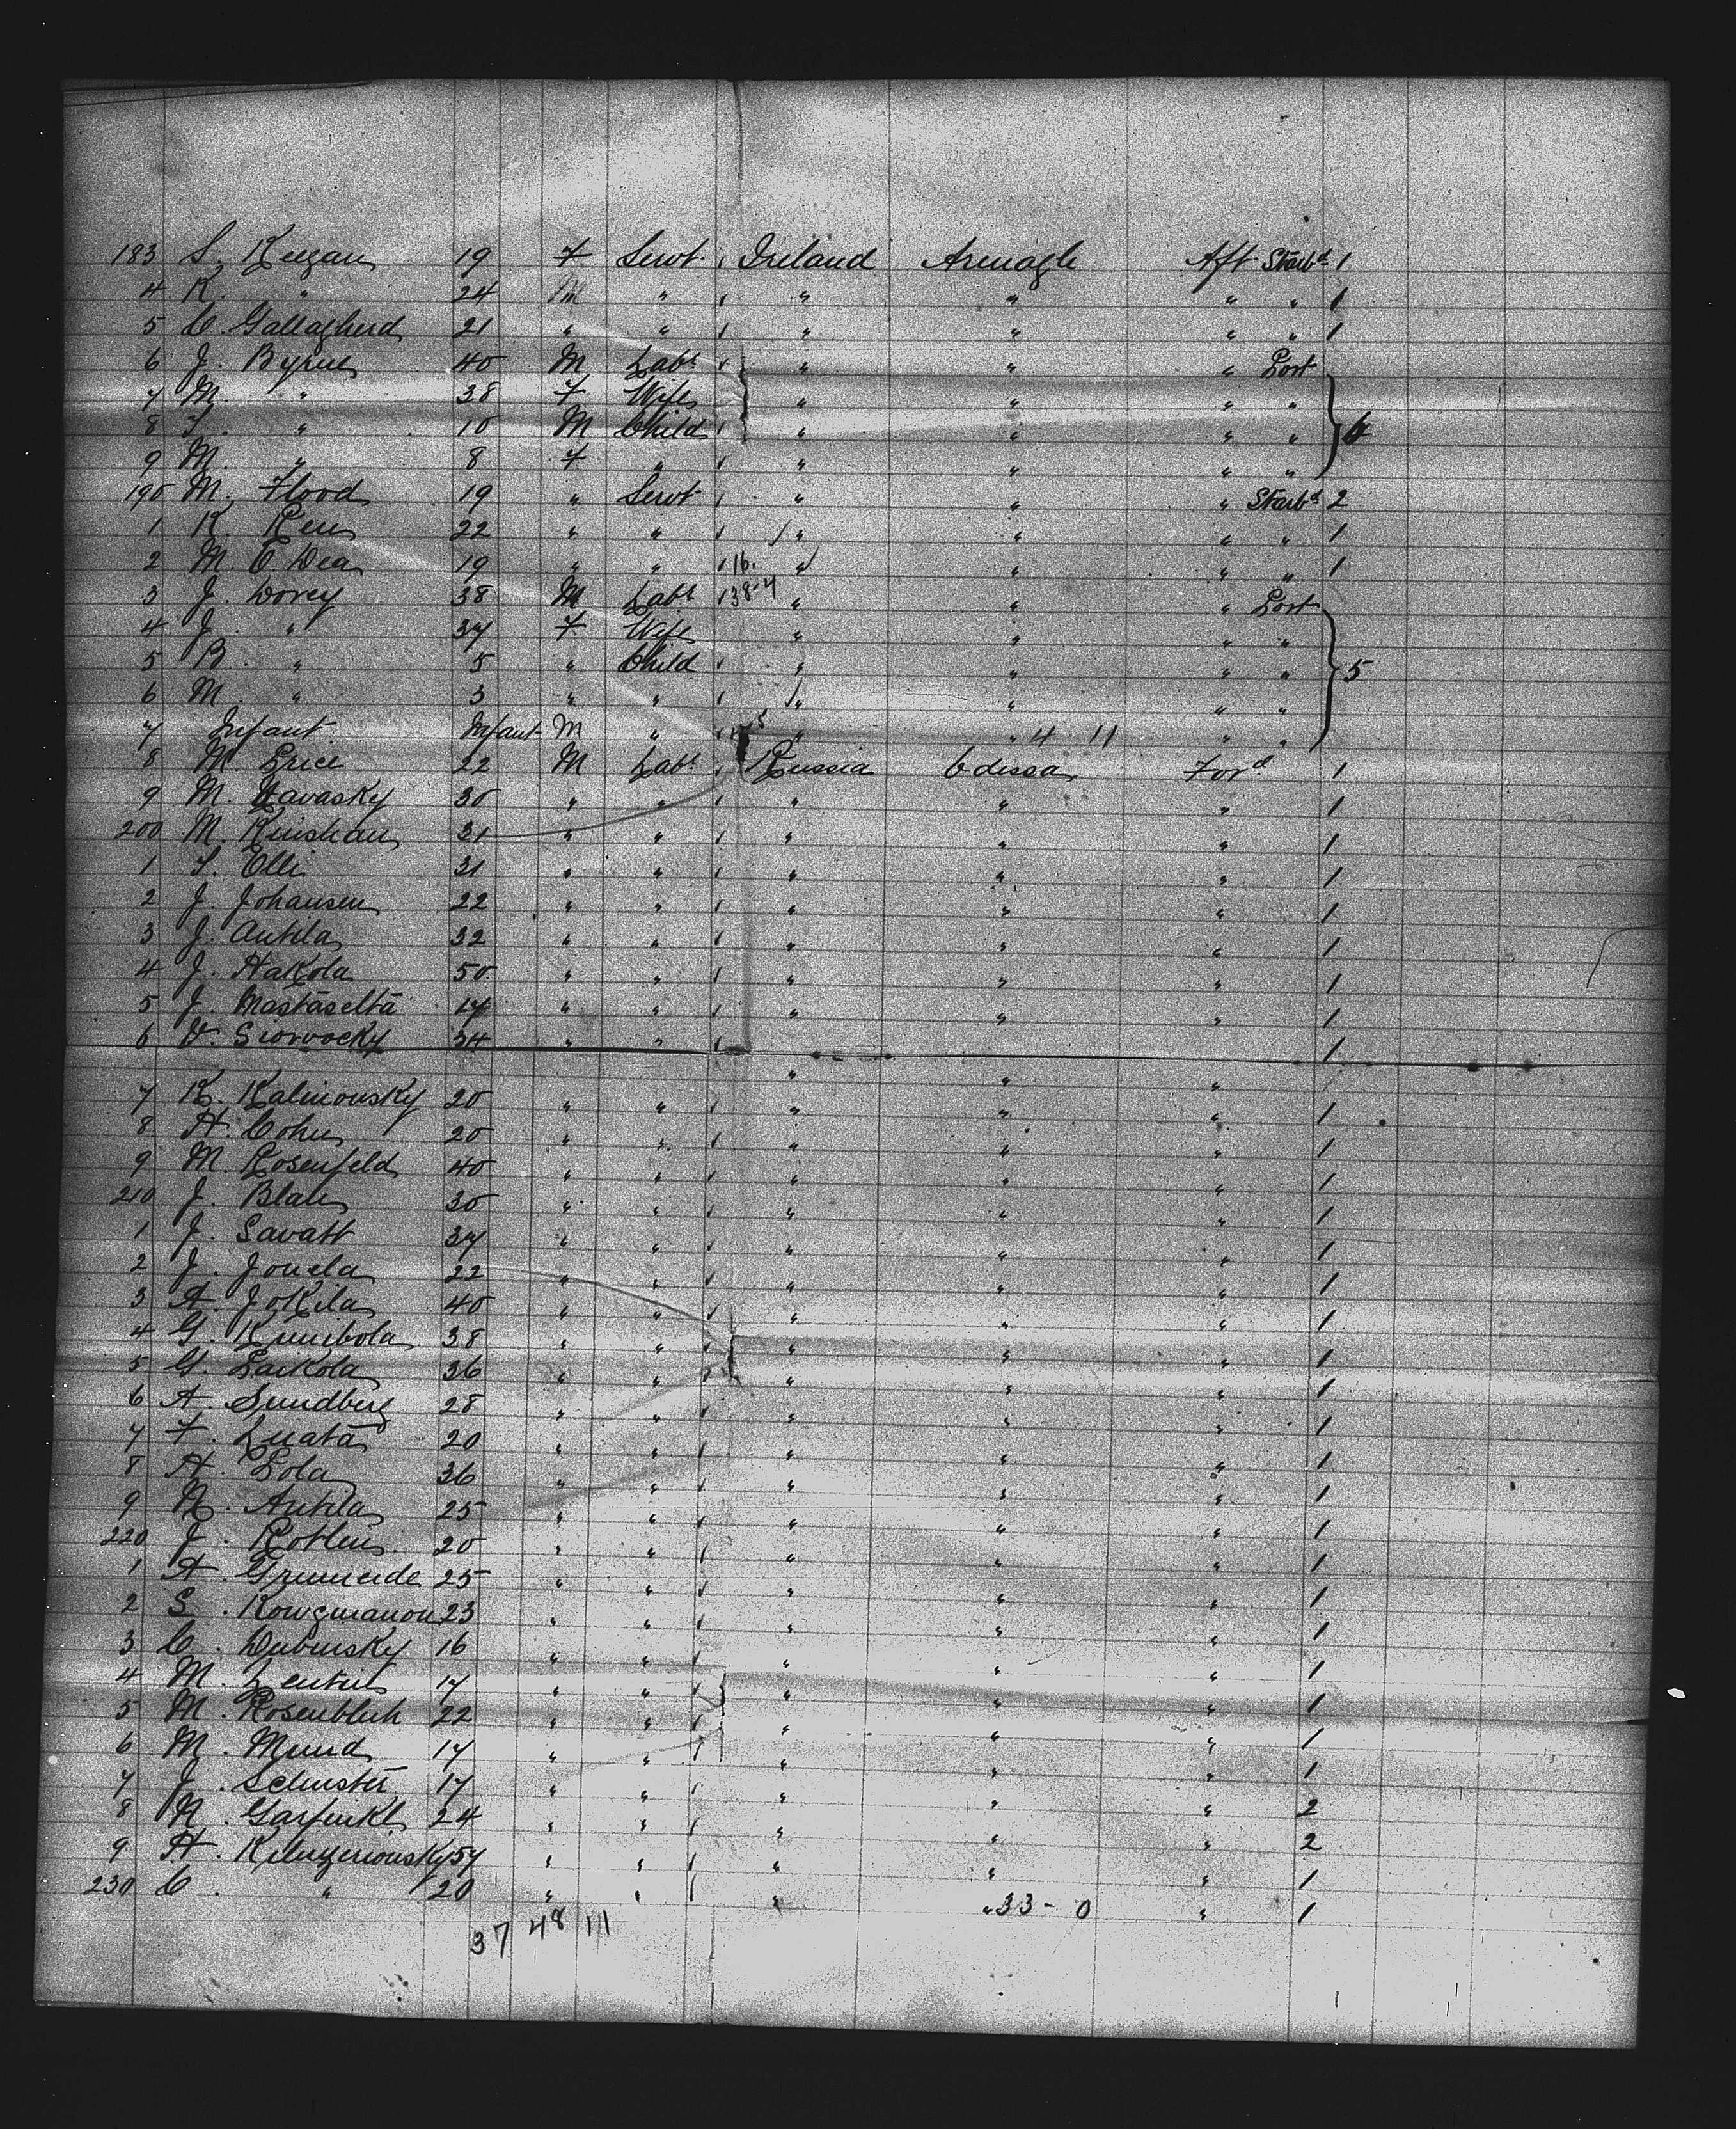 183 S. Keegan 19 F Servt Ireland Armagh Aft Starbd 1
4 K. " 24 M " " " " " 1
5 C. Gallagherd 21 " " " " " " 1
6 J. Byrne 40 M Labr " " " Port
7 M. " 38 F Wife " " " "
8 T. " 10 M Child " " " " 4
9 M. " 8 F " " " " "
190 M. Flood 19 " Servt " " " Starbd 2
1 K. 22 " " " " " " 1
2 M. O'Dea 19 " " 16. " " " " 1
3 J. Dorey 38 M Labr 38-4 " " " Port
4 J. " 37 F Wife " " " "
5 B. " 5 " Child " " " " 5
6 M. " 3 " " " " " "
7 Infant Infant M " " " 4 11 " "
8 M. Price 22 M Labr Russia Odessa Ford 1
9 M. Yavasky 30 " " " " " 1
200 M. 31 " " " " " 1
1 T. Olli 31 " " " " " 1
2 J. Johansen 22 " " " " " 1
3 J. Antila 32 " " " " " 1
4 J. Hakola 50 " " " " " 1
5 J. Mastaselta 17 " " " " " 1
6 V. Siorvocky 34 " " " " " 1
7 K. Kalinonsky 20 " " " " " 1
8 H. Cohn 20 " " " " " 1
9 M. Rosenfeld 40 " " " " " 1
210 J. Blato 30 " " " " " 1
1 J. Savatt 37 " " " " " 1
2 J. Jonela 22 " " " " " 1
3 A. Jokila 40 " " " " " 1
4 G. 38 " " " " " 1
5 G. Laikola 36 " " " " " 1
6 A. Sundberg 28 " " " " " 1
7 F. Luata 20 " " " " " 1
8 H. Lola 36 " " " " " 1
9 N. Antila 25 " " " " " 1
220 J. 20 " " " " " 1
1 A. 25 " " " " " 1
2 S. 23 " " " " " 1
3 C. Dubinsky 16 " " " " " 1
4 M. 17 " " " " " 1
5 M. Rosenbluh 22 " " " " " 1
6 M. Mund 17 " " " " " 1
7 J. Schuster 17 " " " " " 2
8 N. Garfunkl 24 " " " " " 2
9 H. 57 " " " " " 1
230 C. " 20 " " " " 33-0 " 1
37 48 11